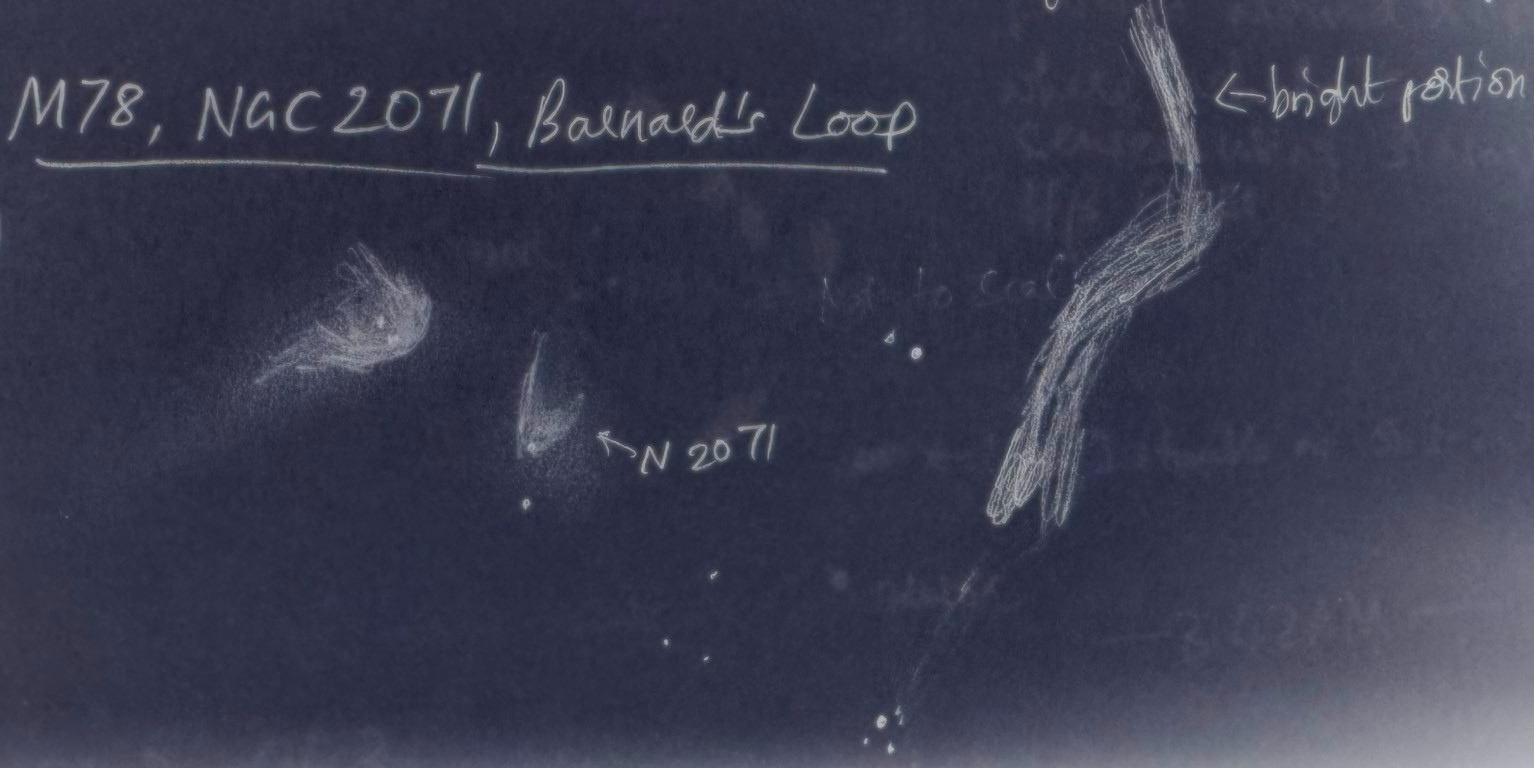 M78, NGC 2071, Barnard's Loop
←bright portion
Not to Scale
↖N 2071